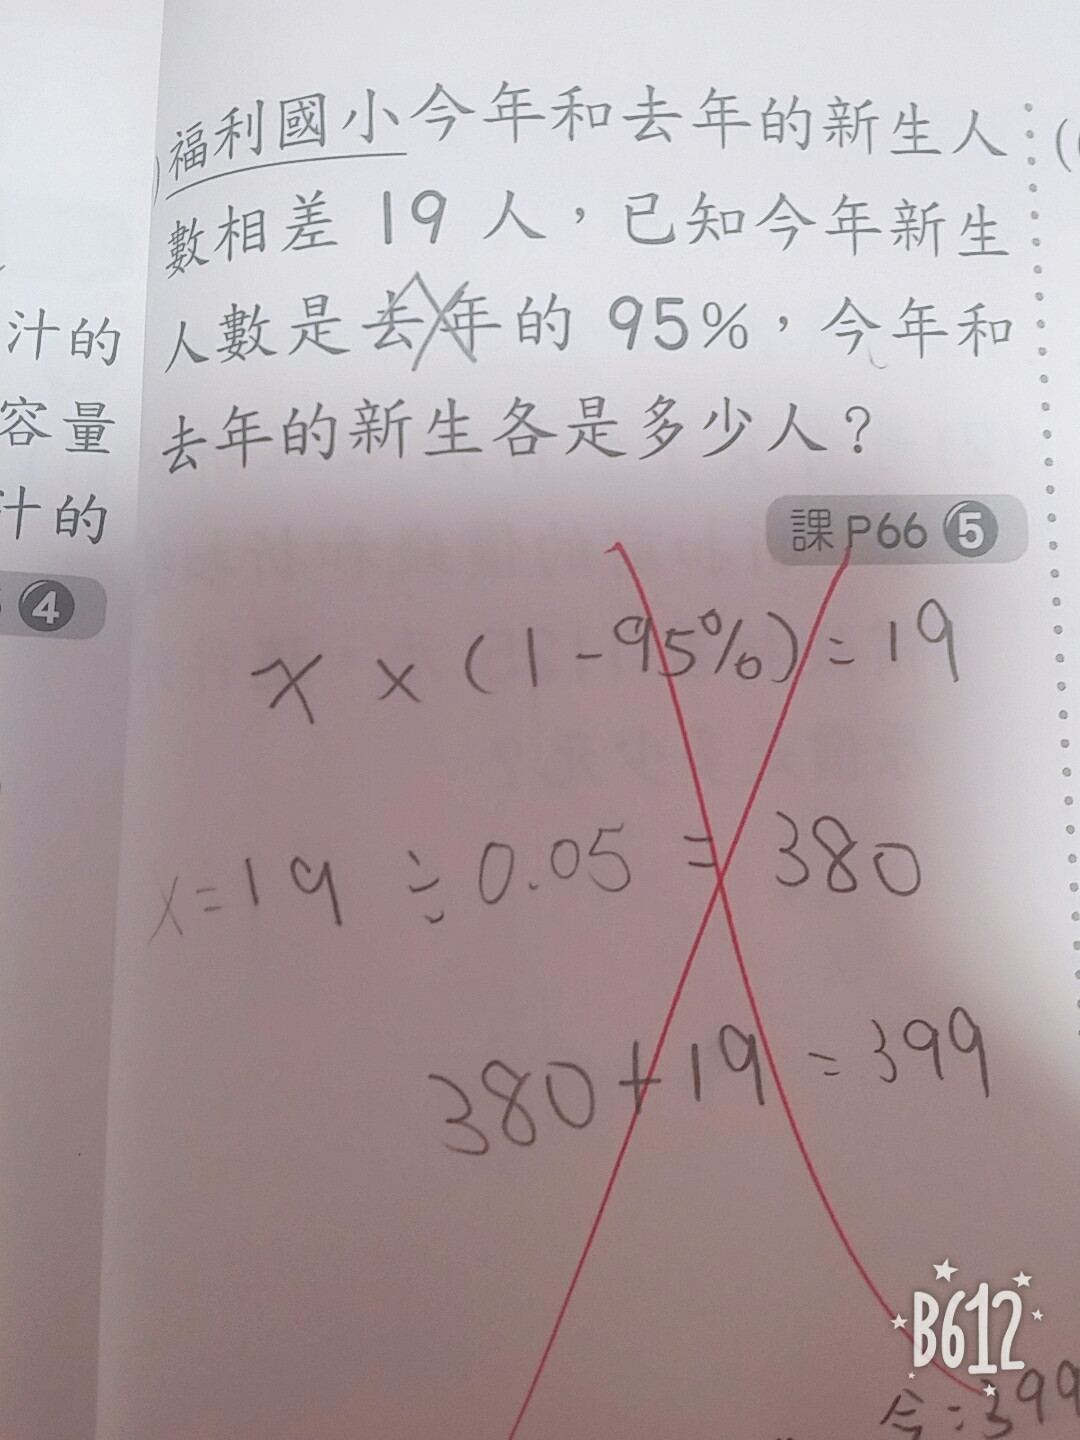 汁的
容量
汁的
4
福利國小今年和去年的新生人
數相差 19 人，已知今年新生
人數是去年的 95%，今年和
去年的新生各是多少人？
課P66 5
x × (1-95%) = 19
x=19 ÷ 0.05 = 380
380+19 = 399
B612
今:399